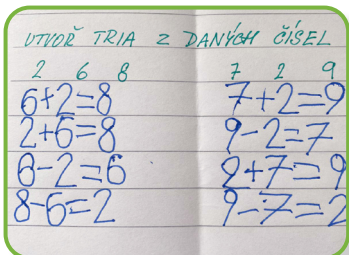 UTVOŘ TRIA Z DANÝCH ČÍSEL
2 6 8
6+2=8
2+6=8
6-2=6
8-6=2
7 2 9
7+2=9
9-2=7
2+7=9
9-7=2